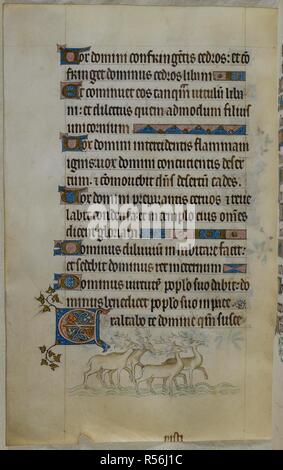 Vox domini confringentis cedros: et con
fringet dominus cedros libani
Et comminuet eos tanquam vitulum liba
ni: et dilectus quemadmodum filius
unicornium
Vox domini intercidentis flammam
ignis: vox domini concutientis deser
tum: et commovebit dns desertum cades.
Vox domini preparantis cervos: et reve
labit condensa: et in templo eius omnes
dicent gloriam
Dominus diluvium inhabitare facit:
et sedebit dominus rex in eternum
Dominus virtutem poplo suo dabit: do
minus benedicet poplo suo in pace.
Exaltabo te domine qm susce
pisti
alamy
Image ID: R56J1C
www.alamy.com